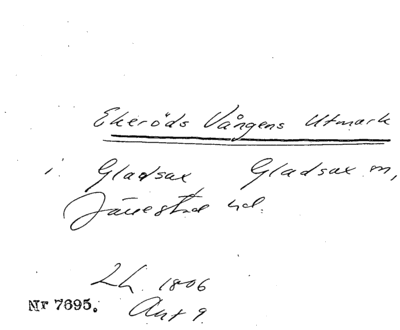 Ekeröds Vångens Utmark
i Gladsax, Gladsax m,
Järrestad hd.
Lh. 1806
Nr 7695. Akt 9